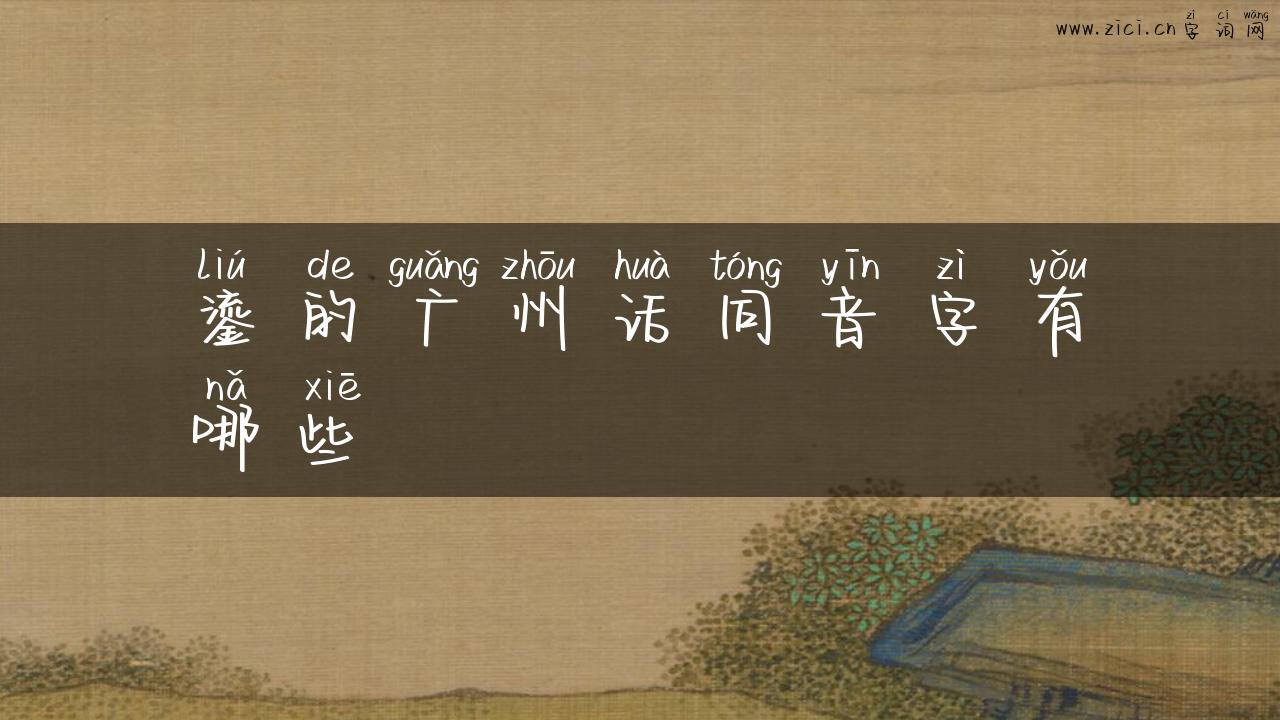 zì cí wǎng
www.zici.cn 字 词 网
liú de guǎng zhōu huà tóng yīn zì yǒu
鎏 的 广 州 话 同 音 字 有
nǎ xiē
哪 些